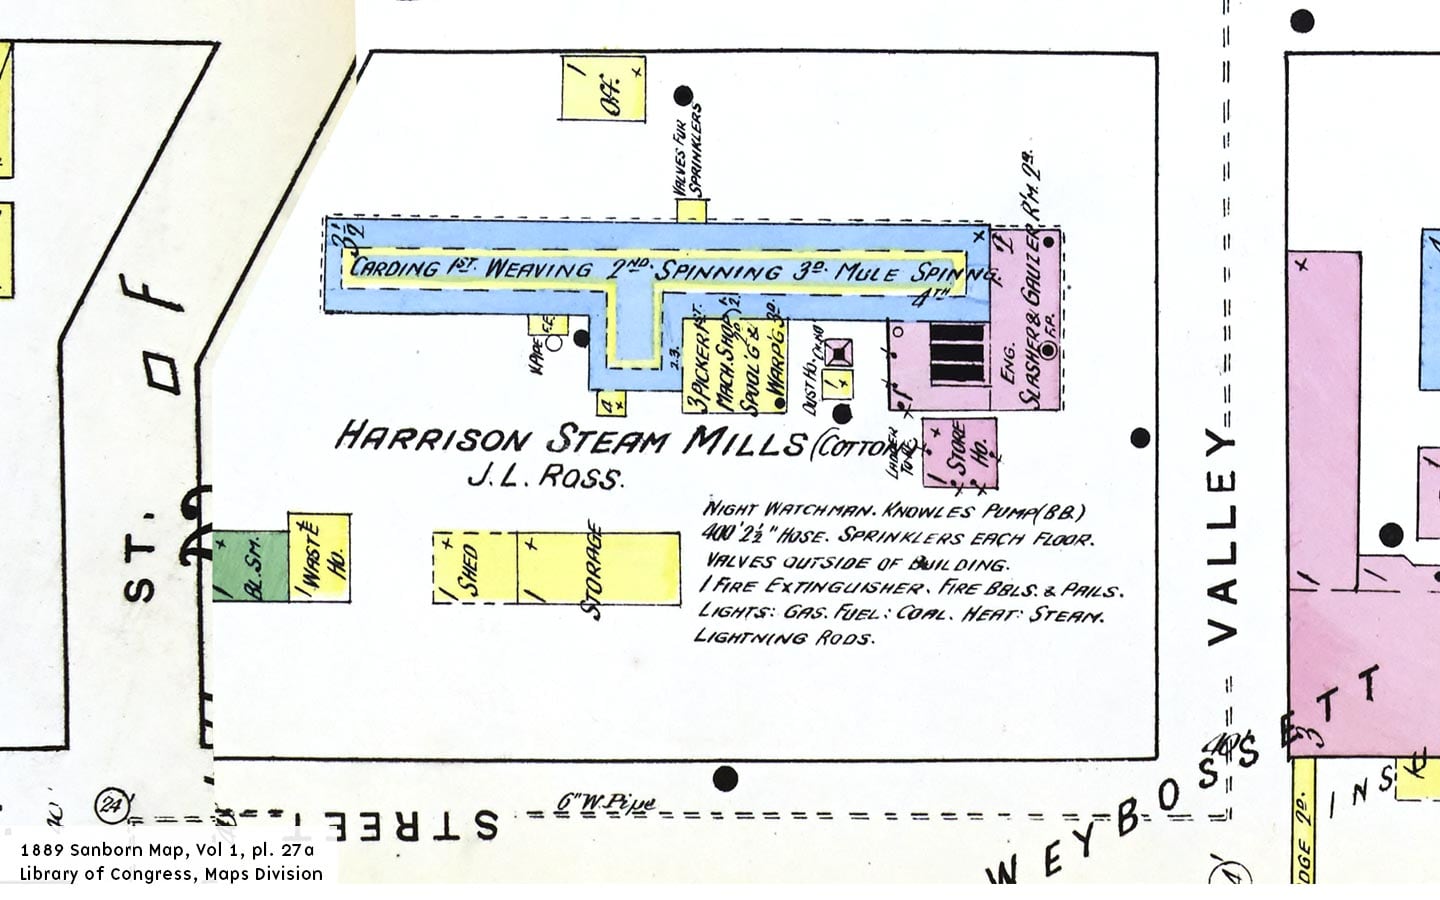 1
Off.
VALVES FOR
SPRINKLERS
2½
CARDING 1ST. WEAVING 2ND. SPINNING 3D. MULE SPINNG.
4TH
2
ENG.
SLASHER & GAUZER R'M. 2D.
F.P.
3 PICKER 1ST.
MACH. SHOP
SPOOL'G &
WARP'G 3D.
2.3.
4
DUST HO.
1
LADDER
TO R.
HARRISON STEAM MILLS (COTTON)
J. L. ROSS.
1 STORE
HO.
NIGHT WATCHMAN. KNOWLES PUMP (B.B.)
400' 2½" HOSE. SPRINKLERS EACH FLOOR.
VALVES OUTSIDE OF BUILDING.
1 FIRE EXTINGUISHER. FIRE BBLS. & PAILS.
LIGHTS: GAS. FUEL: COAL. HEAT: STEAM.
LIGHTNING RODS.
1 BL. SM.
1 WASTE
HO.
1 SHED
1 STORAGE
ST.
VALLEY
1
1
3
24
6" W. Pipe
STREET
WEYBOSSETT
INS
DGE 2D.
1889 Sanborn Map, Vol 1, pl. 27a
Library of Congress, Maps Division